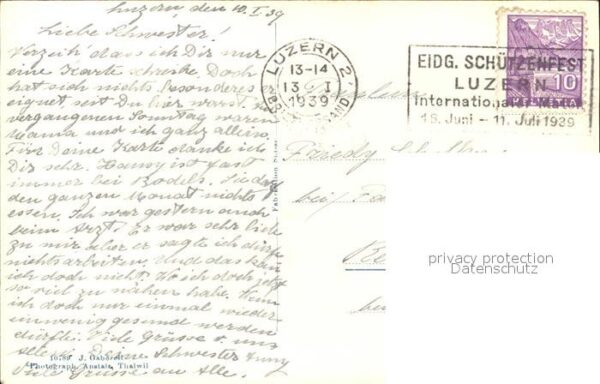 Luzern, den 12. I. 39
Liebe Schwester!
Verzeih dass ich Dir nur
eine Karte schreibe Doch
hat sich nichts besonderes
eignet seit Du hier warst.
vergangenen Sonntag waren
Mama und ich ganz allein.
Für Deine Karte danke ich
Dir sehr. Hanny ist fast
immer bei Bodels.
den ganzen Monat nichts
essen. Ich war gestern auch
beim Arzt. Er war sehr lieb
zu mir aber er sagte ich dürfe
nichts arbeiten. Und das kann
ich doch nicht. Wo ich doch jetzt
so viel zu nähen habe. Wenn
ich doch nur einmal wieder
ein wenig gesund werden
dürfte. Viele Grüsse v. uns
allen Deine Schwester Anny
Viele Grüsse an Alle.
10789 J. Gaberell
Photograph. Anstalt, Thalwil
LUZERN 2
13-14
13 I
1939
EIDG. SCHÜTZENFEST
LUZERN
Internationaler Match
18. Juni - 11. Juli 1939
10
Friedy
bei
privacy protection
Datenschutz